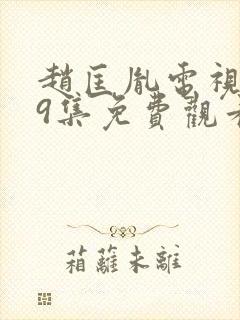 趙匡胤電視
9集免費觀看
箱蘿未離